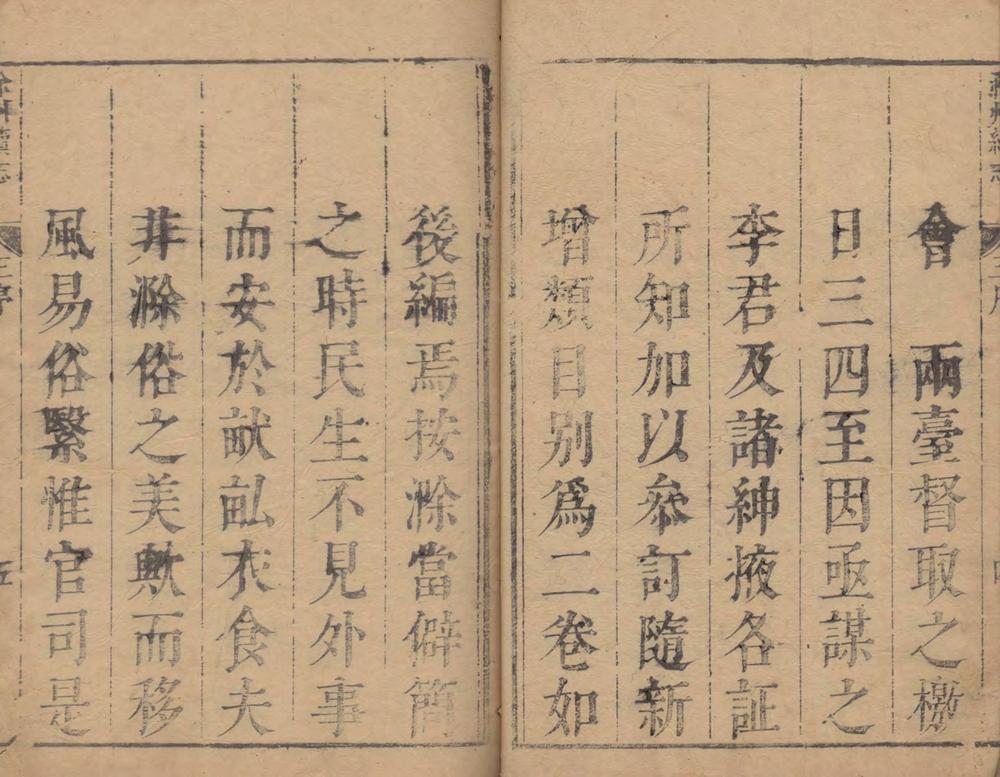 會 兩臺督取之檄
日三四至因亟謀之
李君及諸紳掖各証
所知加以叅訂隨新
增類目別爲二卷如
後編焉按滁當僻簡
之時民生不見外事
而安於畎畝衣食夫
非滁俗之美歟而移
風易俗繄惟官司是